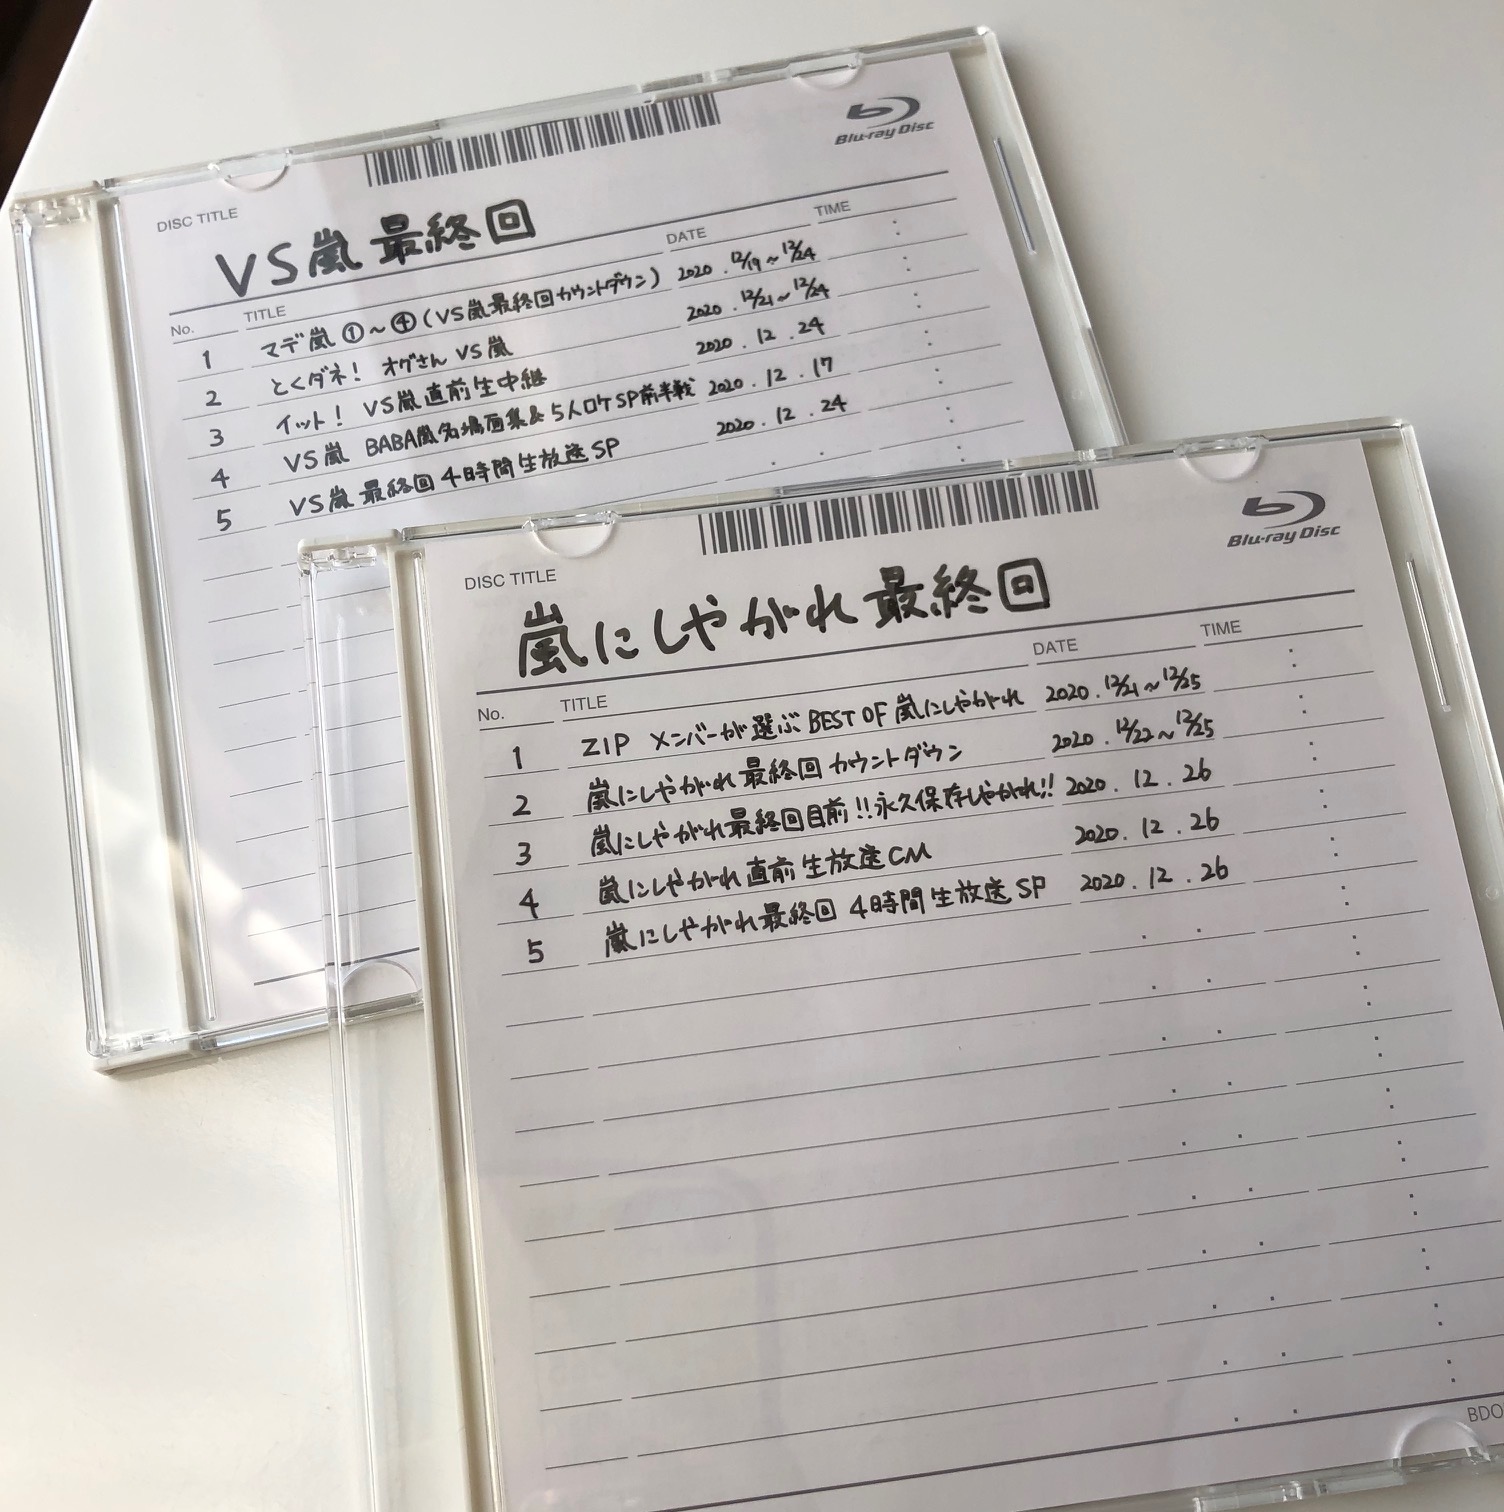 Blu-ray Disc
DISC TITLE
VS嵐 最終回
No. TITLE DATE TIME
1 マデ嵐 ①～④ (VS嵐最終回カウントダウン) 2020.12/19～12/24
2 とくダネ! オグさん VS嵐 2020.12/21～12/24
3 イット! VS嵐直前生中継 2020.12.24
4 VS嵐 BABA嵐名場面集&5人ロケSP前半戦 2020.12.17
5 VS嵐 最終回 4時間生放送SP 2020.12.24
Blu-ray Disc
DISC TITLE
嵐にしやがれ最終回
No. TITLE DATE TIME
1 ZIP メンバーが選ぶ BEST OF 嵐にしやがれ 2020.12/21～12/25
2 嵐にしやがれ最終回カウントダウン 2020.12/22～12/25
3 嵐にしやがれ最終回目前!!永久保存しやがれ!! 2020.12.26
4 嵐にしやがれ直前生放送CM 2020.12.26
5 嵐にしやがれ最終回 4時間生放送SP 2020.12.26